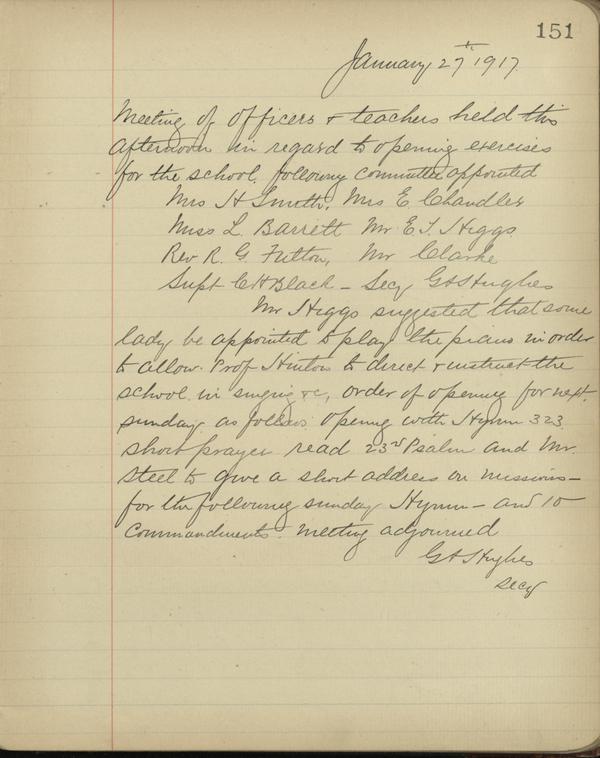 151
January 27th 1917
Meeting of officers & teachers held this
afternoon in regard to opening exercises
for the school. following committee appointed
Mrs H Smith, Mrs E. Chandler
Miss L. Barrett Mr E. T. Higgs
Rev R. G. Fulton, Mr Clarke
Supt C H Black – Secy G H Hughes
Mr Higgs suggested that some
lady be appointed to play the piano in order
to allow Prof Hinton to direct & instruct the
school in singing &c, order of opening for next
sunday as follows opening with Hymn 323
short prayer read 23rd Psalm and Mr.
Steel to give a short address on missions –
for the following sunday Hymn – and 10
Commandments. meeting adjourned
G H Hughes
Secy